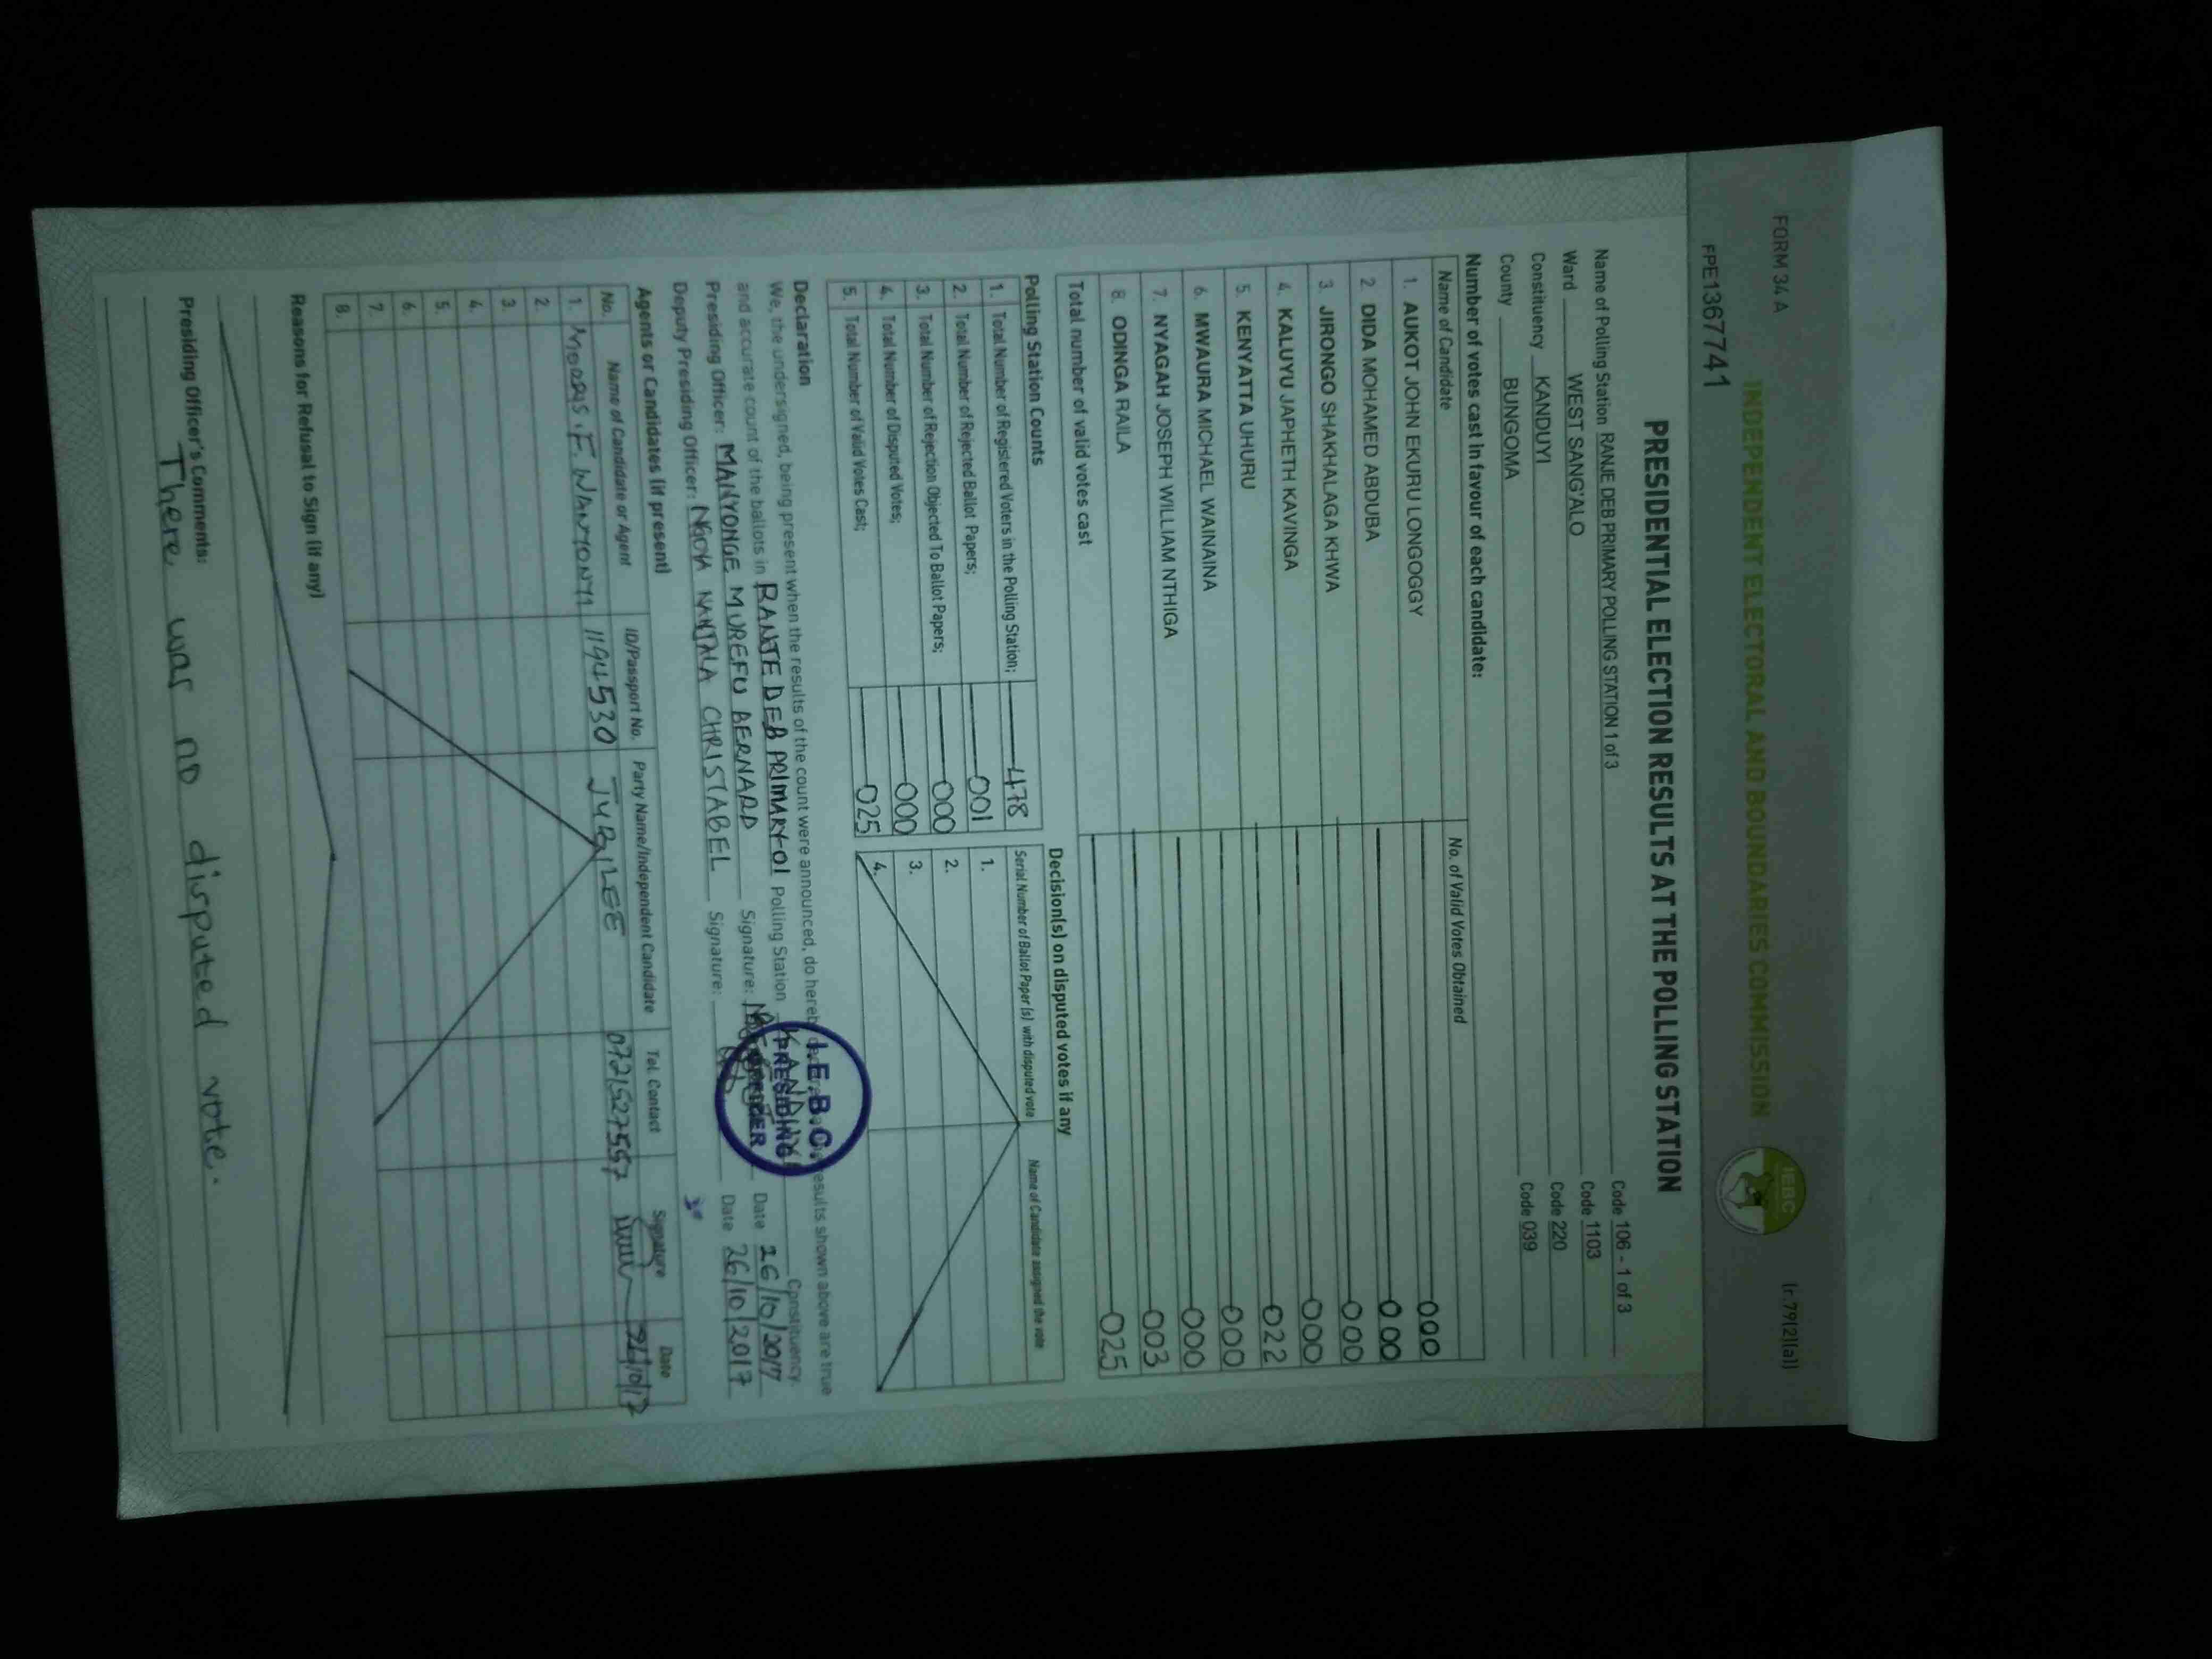 FORM 34 A
(r.79(2)(a))
INDEPENDENT ELECTORAL AND BOUNDARIES COMMISSION
IEBC
FPE1367741
PRESIDENTIAL ELECTION RESULTS AT THE POLLING STATION
Name of Polling Station RANJE DEB PRIMARY POLLING STATION 1 of 3 Code 106 - 1 of 3
Ward WEST SANG'ALO Code 1103
Constituency KANDUYI Code 220
County BUNGOMA Code 039
Number of votes cast in favour of each candidate:
Name of Candidate No. of Valid Votes Obtained
1. AUKOT JOHN EKURU LONGOGGY 000
2. DIDA MOHAMED ABDUBA 000
3. JIRONGO SHAKHALAGA KHWA 000
4. KALUYU JAPHETH KAVINGA 000
5. KENYATTA UHURU 022
6. MWAURA MICHAEL WAINAINA 000
7. NYAGAH JOSEPH WILLIAM NTHIGA 000
8. ODINGA RAILA 003
Total number of valid votes cast 025
Polling Station Counts
1. Total Number of Registered Voters in the Polling Station; 478
2. Total Number of Rejected Ballot Papers; 001
3. Total Number of Rejection Objected To Ballot Papers; 000
4. Total Number of Disputed Votes; 000
5. Total Number of Valid Votes Cast; 025
Decision(s) on disputed votes if any
Serial Number of Ballot Paper(s) with disputed vote Name of Candidate assigned the vote
1.
2.
3.
4.
Declaration
We, the undersigned, being present when the results of the count were announced, do hereby results shown above are true
and accurate count of the ballots in RANJE DEB PRIMARY-01 Polling Station KANDUYI Constituency.
Presiding Officer: MANYONGE MUREFU BERNARD Signature: Date 26/10/2017
Deputy Presiding Officer: NGOYA NANJALA CHRISTABEL Signature: Date 26/10/2017
I.E.B.C.
PRESIDING
OFFICER
Agents or Candidates (if present)
No. Name of Candidate or Agent ID/Passport No. Party Name/Independent Candidate Tel. Contact Signature Date
1. MOORIS.F.WANYONYI 1194530 JUBILEE 0721527557 26/10/17
2.
3.
4.
5.
6.
7.
8.
Reasons for Refusal to Sign (if any)
Presiding Officer's Comments:
There was no disputed vote.